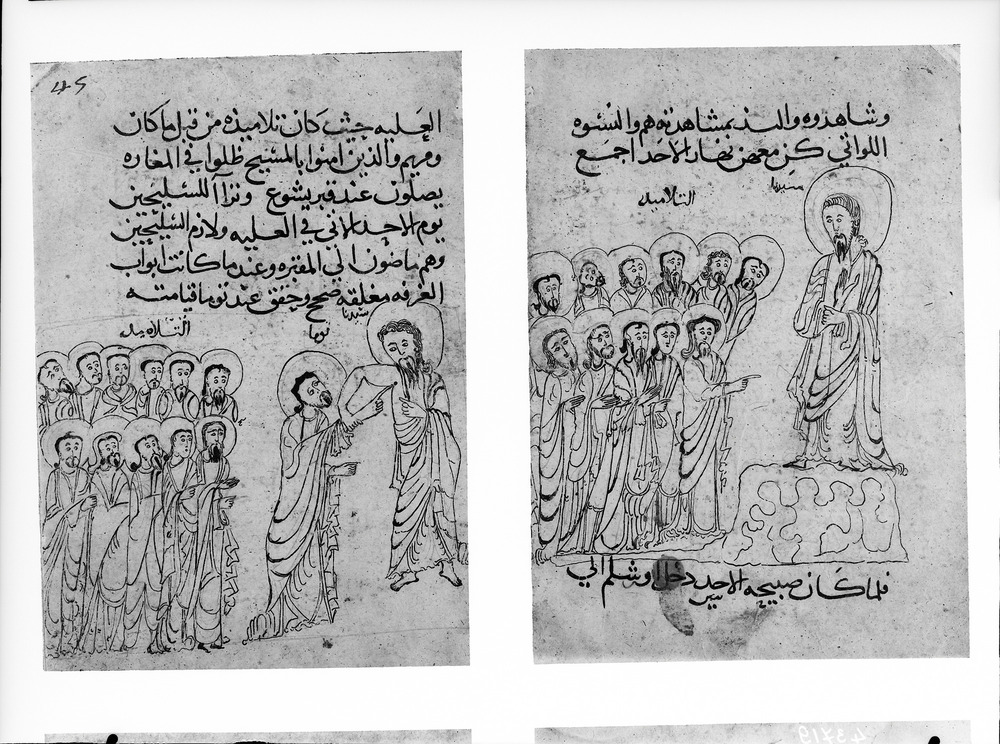 وشاهدوه بمشاهدته هم والنسوه
اللواتي كن معهن نهار الاحد اجمع
سيدنا
التلاميذ
فلما كان صبيحه الاحد دخل وسلم الي
45
العليه حيث كان تلاميذه من قبل ما كان
ومريم والذين امنوا بالمسيح ظلوا في المغاره
يصلون عند قبر يشوع وترآا للسليحين
يوم الاحد في العليه ولازم السليحين
وهم ماضون الي المقبره وعند ما كانت ابواب
الغرفه مغلقه صحح وحقق عند توما قيامته
سيدنا
توما
التلاميذ
43719